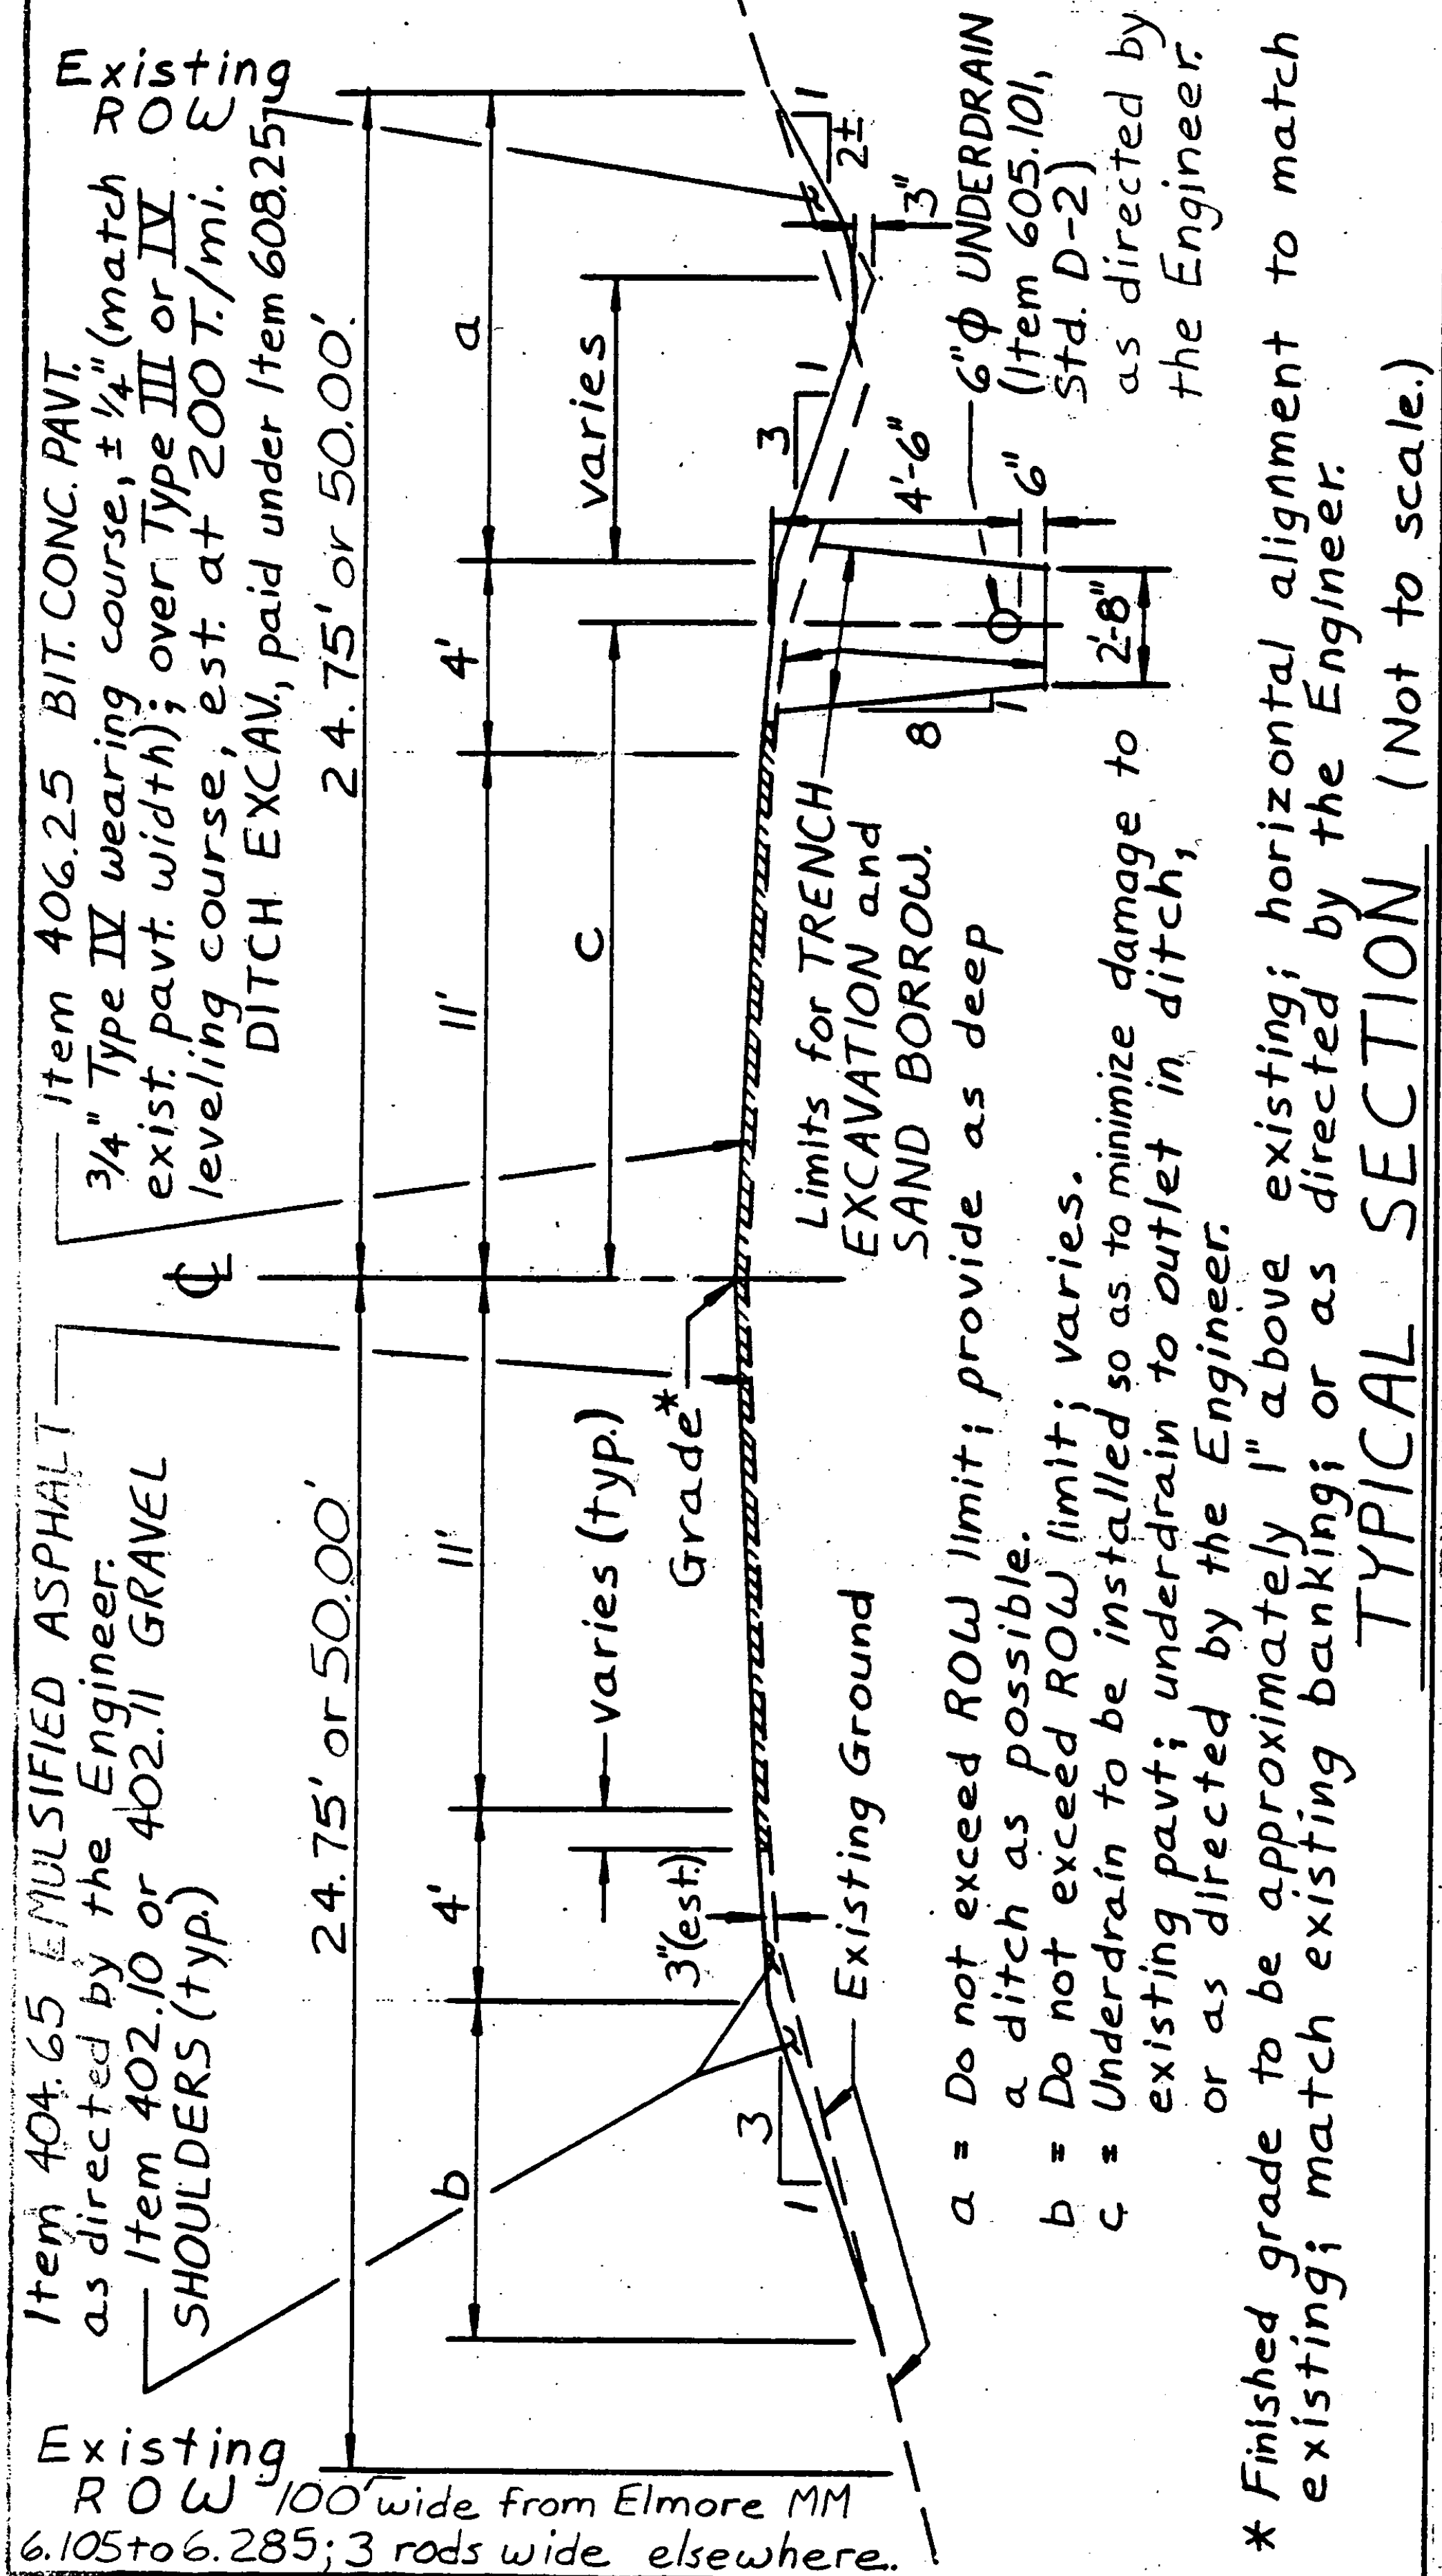 Item 404.65 EMULSIFIED ASPHALT
as directed by the Engineer.
Item 402.10 or 402.11 GRAVEL
SHOULDERS (typ.)
Item 406.25 BIT. CONC. PAVT.
3/4" Type IV wearing course, ± 1/4" (match
exist. pavt. width); over Type III or IV
leveling course, est. at 200 T./mi.
DITCH EXCAV., paid under Item 608.25
Existing
ROW
Existing
ROW
100' wide from Elmore MM
6.105 to 6.285; 3 rods wide elsewhere.
℄
24.75' or 50.00'
24.75' or 50.00'.
b
4'
11'
11'
4'
a
varies (typ.)
c
varies
3" (est.)
Grade*
3
1
3
1
1
2±
3"
Existing Ground
Limits for TRENCH
EXCAVATION and
SAND BORROW.
8
1
2'-8"
4'-6"
6"
6"ϕ UNDERDRAIN
(Item 605.101,
Std. D-2)
as directed by
the Engineer.
a = Do not exceed ROW limit; provide as deep
a ditch as possible.
b = Do not exceed ROW limit; varies.
c = Underdrain to be installed so as to minimize damage to
existing pavt; underdrain to outlet in ditch,
or as directed by the Engineer.
* Finished grade to be approximately 1" above existing; horizontal alignment to match
existing; match existing banking; or as directed by the Engineer.
TYPICAL SECTION (Not to scale.)